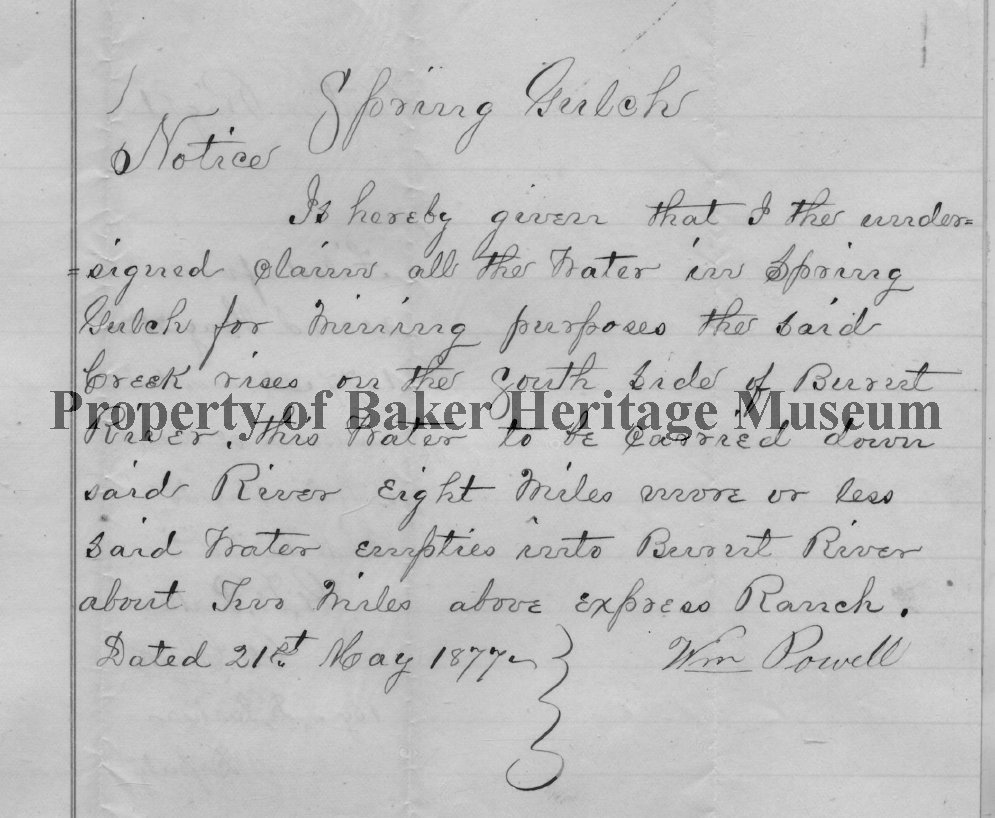 Spring Gulch
Notice
Is hereby given that I the under=
=signed claim all the Water in Spring
Gulch for Mining purposes the said
Creek rises on the South side of Burnt
Property of Baker Heritage Museum
River. this Water to be Carried down
said River Eight Miles more or less
said Water empties into Burnt River
about Two Miles above express Ranch.
Dated 21st. May 1877
Wm Powell